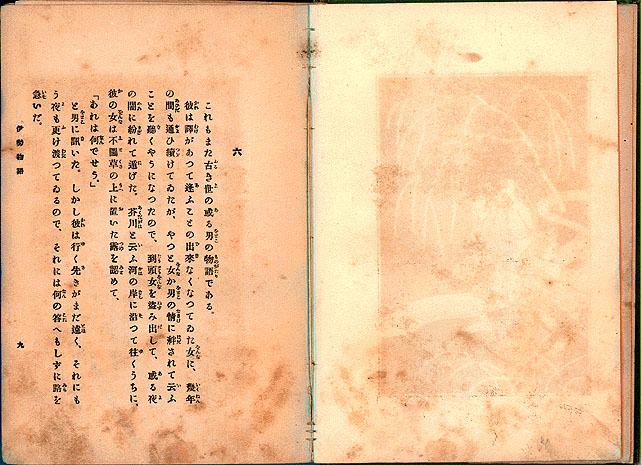 六
これもまた古き世の或る男の物語である。
彼は譯があつて逢ふことの出來なくなつてゐた女に、幾年
の間も通ひ續けてゐたが、やつと女が男の情に絆されて云ふ
ことを聽くやうになつたので、到頭女を盜み出して、或る夜
の闇に紛れて逃げた。芥川と云ふ河の岸に沿つて往くうちに、
彼の女は不圖草の上に置いた露を認めて、
「あれは何でせう」
と男に訊いた。しかし彼は行く先きがまだ遠く、それにも
う夜も更け渡つてゐるので、それには何の答へもしずに路を
急いだ。
伊勢物語
九